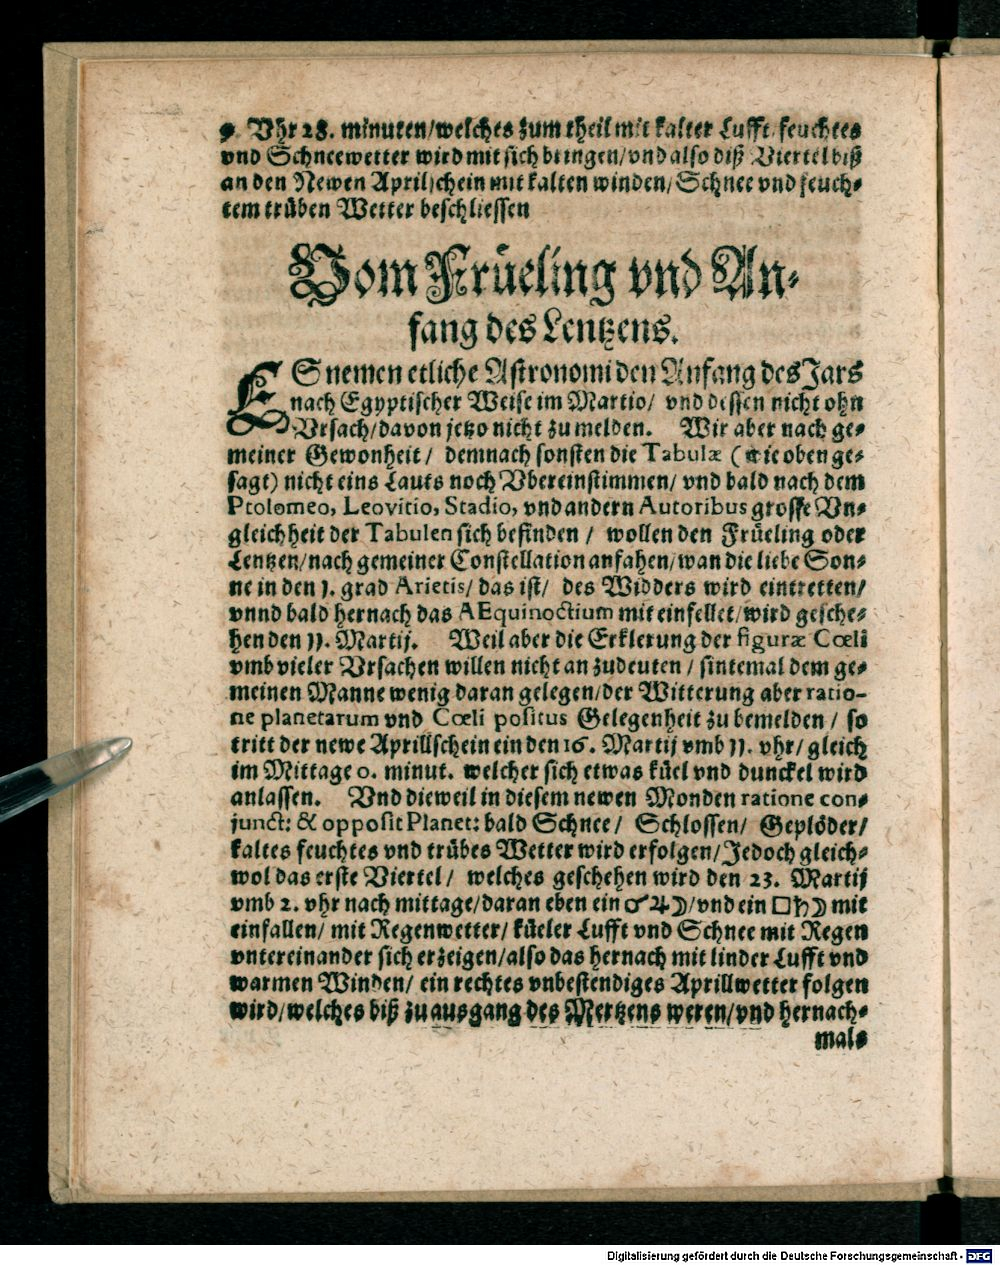 9. Vhr 28. minuten/welches zum theil mit kalter Lufft/feuchtes
vnd Schneewetter wird mit sich bringen/vnd also diß Viertel biß
an den Newen Aprilschein mit kalten winden/Schnee vnd feuch-
tem trüben Wetter beschliessen
Vom Früeling vnd An-
fang des Lentzens.
ES nemen etliche Astronomi den Anfang des Jars
nach Egyptischer Weise im Martio/ vnd dessen nicht ohn
Vrsach/davon jetzo nicht zu melden. Wir aber nach ge-
meiner Gewonheit/ demnach sonsten die Tabulæ (wie oben ge-
sagt) nicht eins Lauts noch Vbereinstimmen/ vnd bald nach dem
Ptolomeo, Leovitio, Stadio, vnd andern Autoribus grosse Vn-
gleichheit der Tabulen sich befinden/ wollen den Früeling oder
Lentzen/nach gemeiner Constellation anfahen/wan die liebe Son-
ne in den 1. grad Arietis/ das ist/ des Widders wird eintretten/
vnnd bald hernach das AEquinoctium mit einfellet/wird gesche-
hen den 11. Martij. Weil aber die Erklerung der figuræ Cœli
vmb vieler Vrsachen willen nicht an zudeuten/ sintemal dem ge-
meinen Manne wenig daran gelegen/der Witterung aber ratio-
ne planetarum vnd Cœli positus Gelegenheit zu bemelden/ so
tritt der newe Aprillschein ein den 16. Martij vmb 11. vhr/ gleich
im Mittage 0. minut. welcher sich etwas küel vnd dunckel wird
anlassen. Vnd dieweil in diesem newen Monden ratione con-
junct: & opposit Planet: bald Schnee/ Schlossen/ Geplöder/
kaltes feuchtes vnd trübes Wetter wird erfolgen/Jedoch gleich-
wol das erste Viertel/ welches geschehen wird den 23. Martij
vmb 2. vhr nach mittage/daran eben ein ☌♃☽/vnd ein □♄☽ mit
einfallen/ mit Regenwetter/ küeler Lufft vnd Schnee mit Regen
vntereinander sich erzeigen/also das hernach mit linder Lufft vnd
warmen Winden/ ein rechtes vnbestendiges Aprillwetter folgen
wird/welches biß zu ausgang des Mertzens weren/vnd hernach-
mals
Digitalisierung gefördert durch die Deutsche Forschungsgemeinschaft - DFG